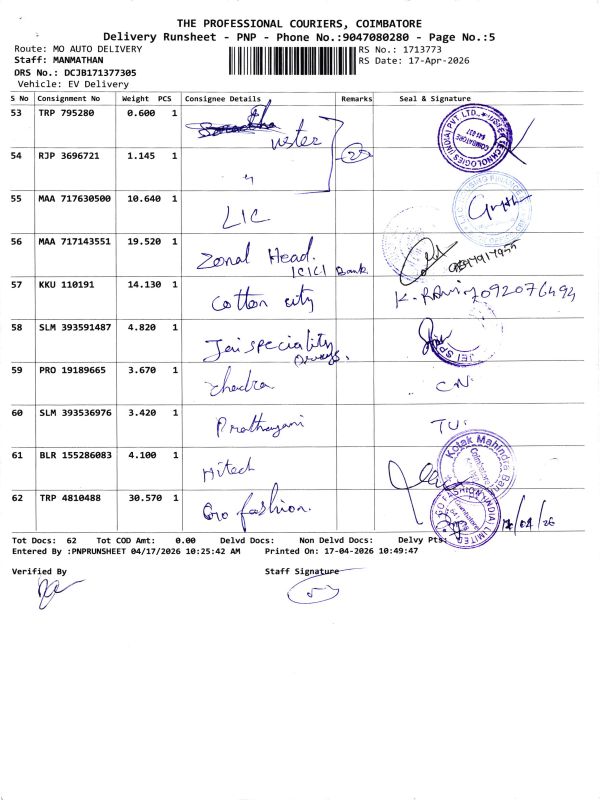 THE PROFESSIONAL COURIERS, COIMBATORE
Delivery Runsheet - PNP - Phone No.:9047080280 - Page No.:5
Route: MO AUTO DELIVERY
RS No.: 1713773
Staff: MANMATHAN
RS Date: 17-Apr-2026
DRS No.: DCJB171377305
Vehicle: EV Delivery
S No Consignment No Weight PCS Consignee Details Remarks Seal & Signature
53 TRP 795280 0.600 1 Uster
54 RJP 3696721 1.145 1 "
55 MAA 717630500 10.640 1 LIC
56 MAA 717143551 19.520 1 Zonal Head.
ICICI Bank
57 KKU 110191 14.130 1 Cotton city K. RAVI 7092076494
58 SLM 393591487 4.820 1 Jai speciality
59 PRO 19189665 3.670 1 CN
60 SLM 393536976 3.420 1 TU
61 BLR 155286083 4.100 1 Hitech Kotak Mahindra Bank
62 TRP 4810488 30.570 1 Go fashion. GO FASHION (INDIA) LIMITED 17/04/26
Tot Docs: 62 Tot COD Amt: 0.00 Delvd Docs: Non Delvd Docs: Delvy Pts:
Entered By :PNPRUNSHEET 04/17/2026 10:25:42 AM Printed On: 17-04-2026 10:49:47
Verified By Staff Signature